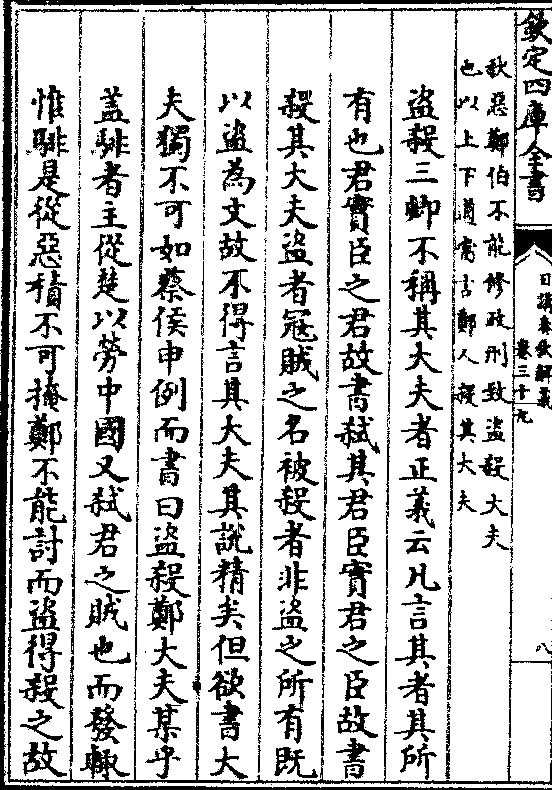 欽定四庫全書
日講春秋解義
卷三十九
八
秋惡鄭伯不能修政刑致盜殺大夫
也以上下道當言鄭人殺其大夫
盜殺三卿不稱其大夫者正義云凡言其者其所
有也君實臣之君故書弒其君臣實君之臣故書
殺其大夫盜者冦賊之名被殺者非盜之所有既
以盜為文故不得言其大夫其說精矣但欲書大
夫獨不可如蔡侯申例而書曰盜殺鄭大夫某乎
蓋騑者主從楚以勞中國又弒君之賊也而發輒
惟騑是從惡積不可掩鄭不能討而盜得殺之故